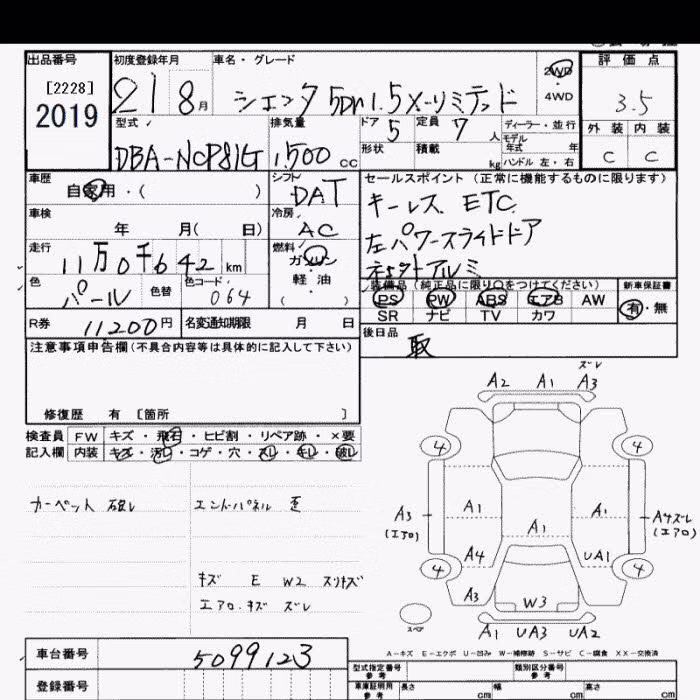 出品番号 初度登録年月 車名・グレード 2WD 4WD 評価点
[2228]
2019 21 8月 シエンタ 5Dr 1.5 X-リミテッド 3.5
型式 排気量 ドア 定員 ディーラー・並行 外装 内装
DBA-NCP81G 1,500cc 5 7人 モデル年式 年 C C
形状 積載 kg ハンドル 左・右
車歴 シフト セールスポイント (正常に機能するものに限ります)
自家用・( ) DAT キーレス ETC
車検 冷房
年 月( 日) AC 左パワースライドドア
走行 燃料
11万0千642km ガソリン 軽油 ( ) アルミ
色 色替 色コード 装備品 (純正品に限り○をつけてください) 新車保証書
パール 064 PS PW ABS エアB AW 有・無
SR ナビ TV カワ
R券 11200円 名変通知期限 月 日 後日品
取
注意事項申告欄(不具合内容等は具体的に記入して下さい)
修復歴 有 [箇所 ]
検査員 FW キズ・飛石・ヒビ割・リペア跡・×要
記入欄 内装 キズ・汚レ・コゲ・穴・スレ・キレ・破レ
カーペット 破レ エンドパネル 歪
キズ E W2 スリキズ
エアロ.キズ ズレ
ズレ
A2 A1 A3
4 4
A3 A1 A1 A4ズレ
(エアロ) A1 (エアロ)
A4 UA1
4 4
A3 W3
スペア A1 UA3 UA2
A-キズ E-エクボ U-凹み W-補修跡 S-サビ C-腐食 XX-交換済
車台番号 5099123
型式指定番号 参考 類別区分番号 参考
登録番号 車庫証明用 参考 長さ cm 幅 cm 高さ cm